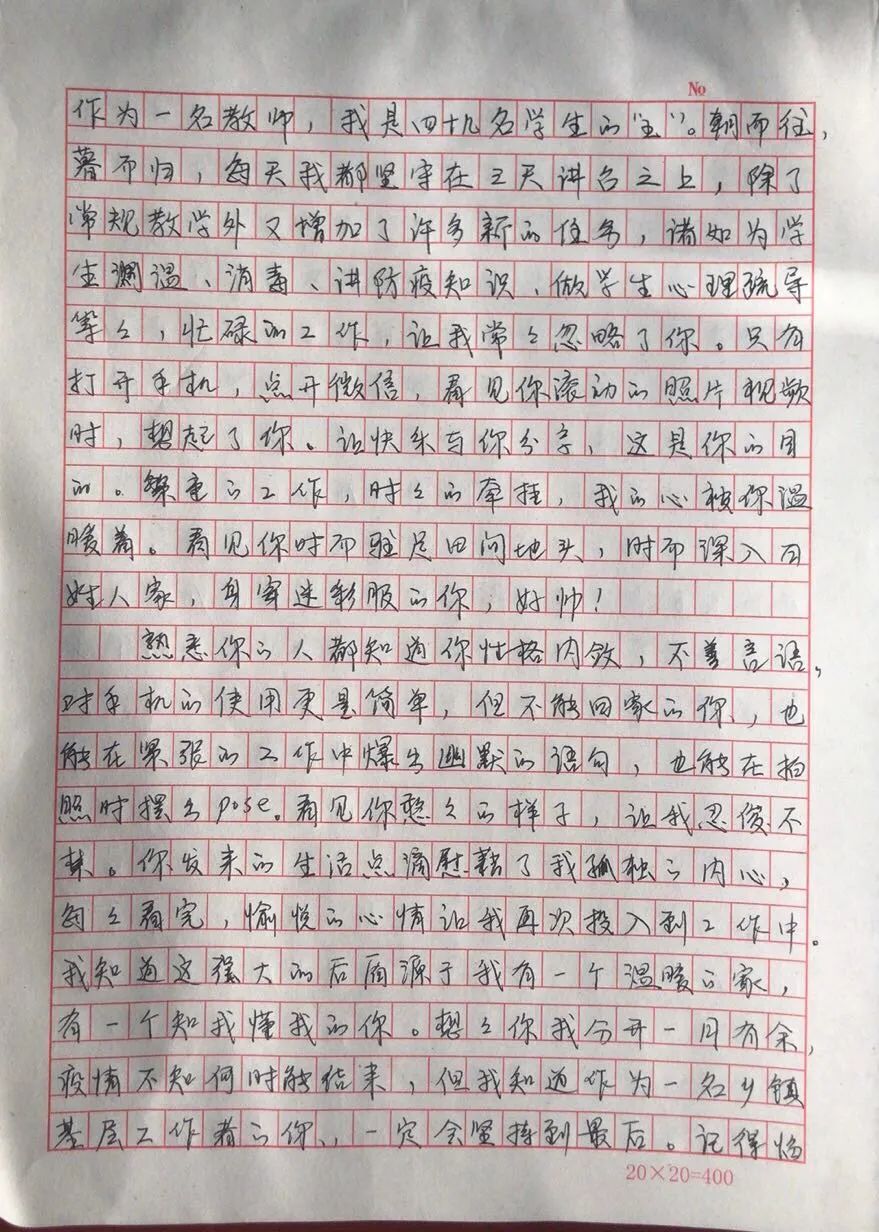 No
作为一名教师，我是四十九名学生的“主”。朝而往，
暮而归，每天我都坚守在三尺讲台之上，除了
常规教学外又增加了许多新的任务，诸如为学
生测温、消毒、讲防疫知识、做学生心理疏导
等々，忙碌的工作，让我常々忽略了你。只有
打开手机，点开微信，看见你滚动的照片视频
时，想起了你。让快乐与你分享，这是你的目
的。繁重的工作，时々的牵挂，我的心被你温
暖着。看见你时而驻足田间地头，时而深入百
姓人家，身穿迷彩服的你，好帅！
熟悉你的人都知道你性格内敛，不善言语，
对手机的使用更是简单，但不能回家的你，也
能在紧张的工作中爆出幽默的语句，也能在拍
照时摆个pose。看见你憨々的样子，让我忍俊不
禁。你发来的生活点滴慰藉了我孤独的内心，
每々看完，愉悦的心情让我再次投入到工作中。
我知道这强大的后盾源于我有一个温暖的家，
有一个知我懂我的你。想々你我分开一月有余，
疫情不知何时能结束，但我知道作为一名乡镇
基层工作者的你，一定会坚持到最后。记得临
20×20=400